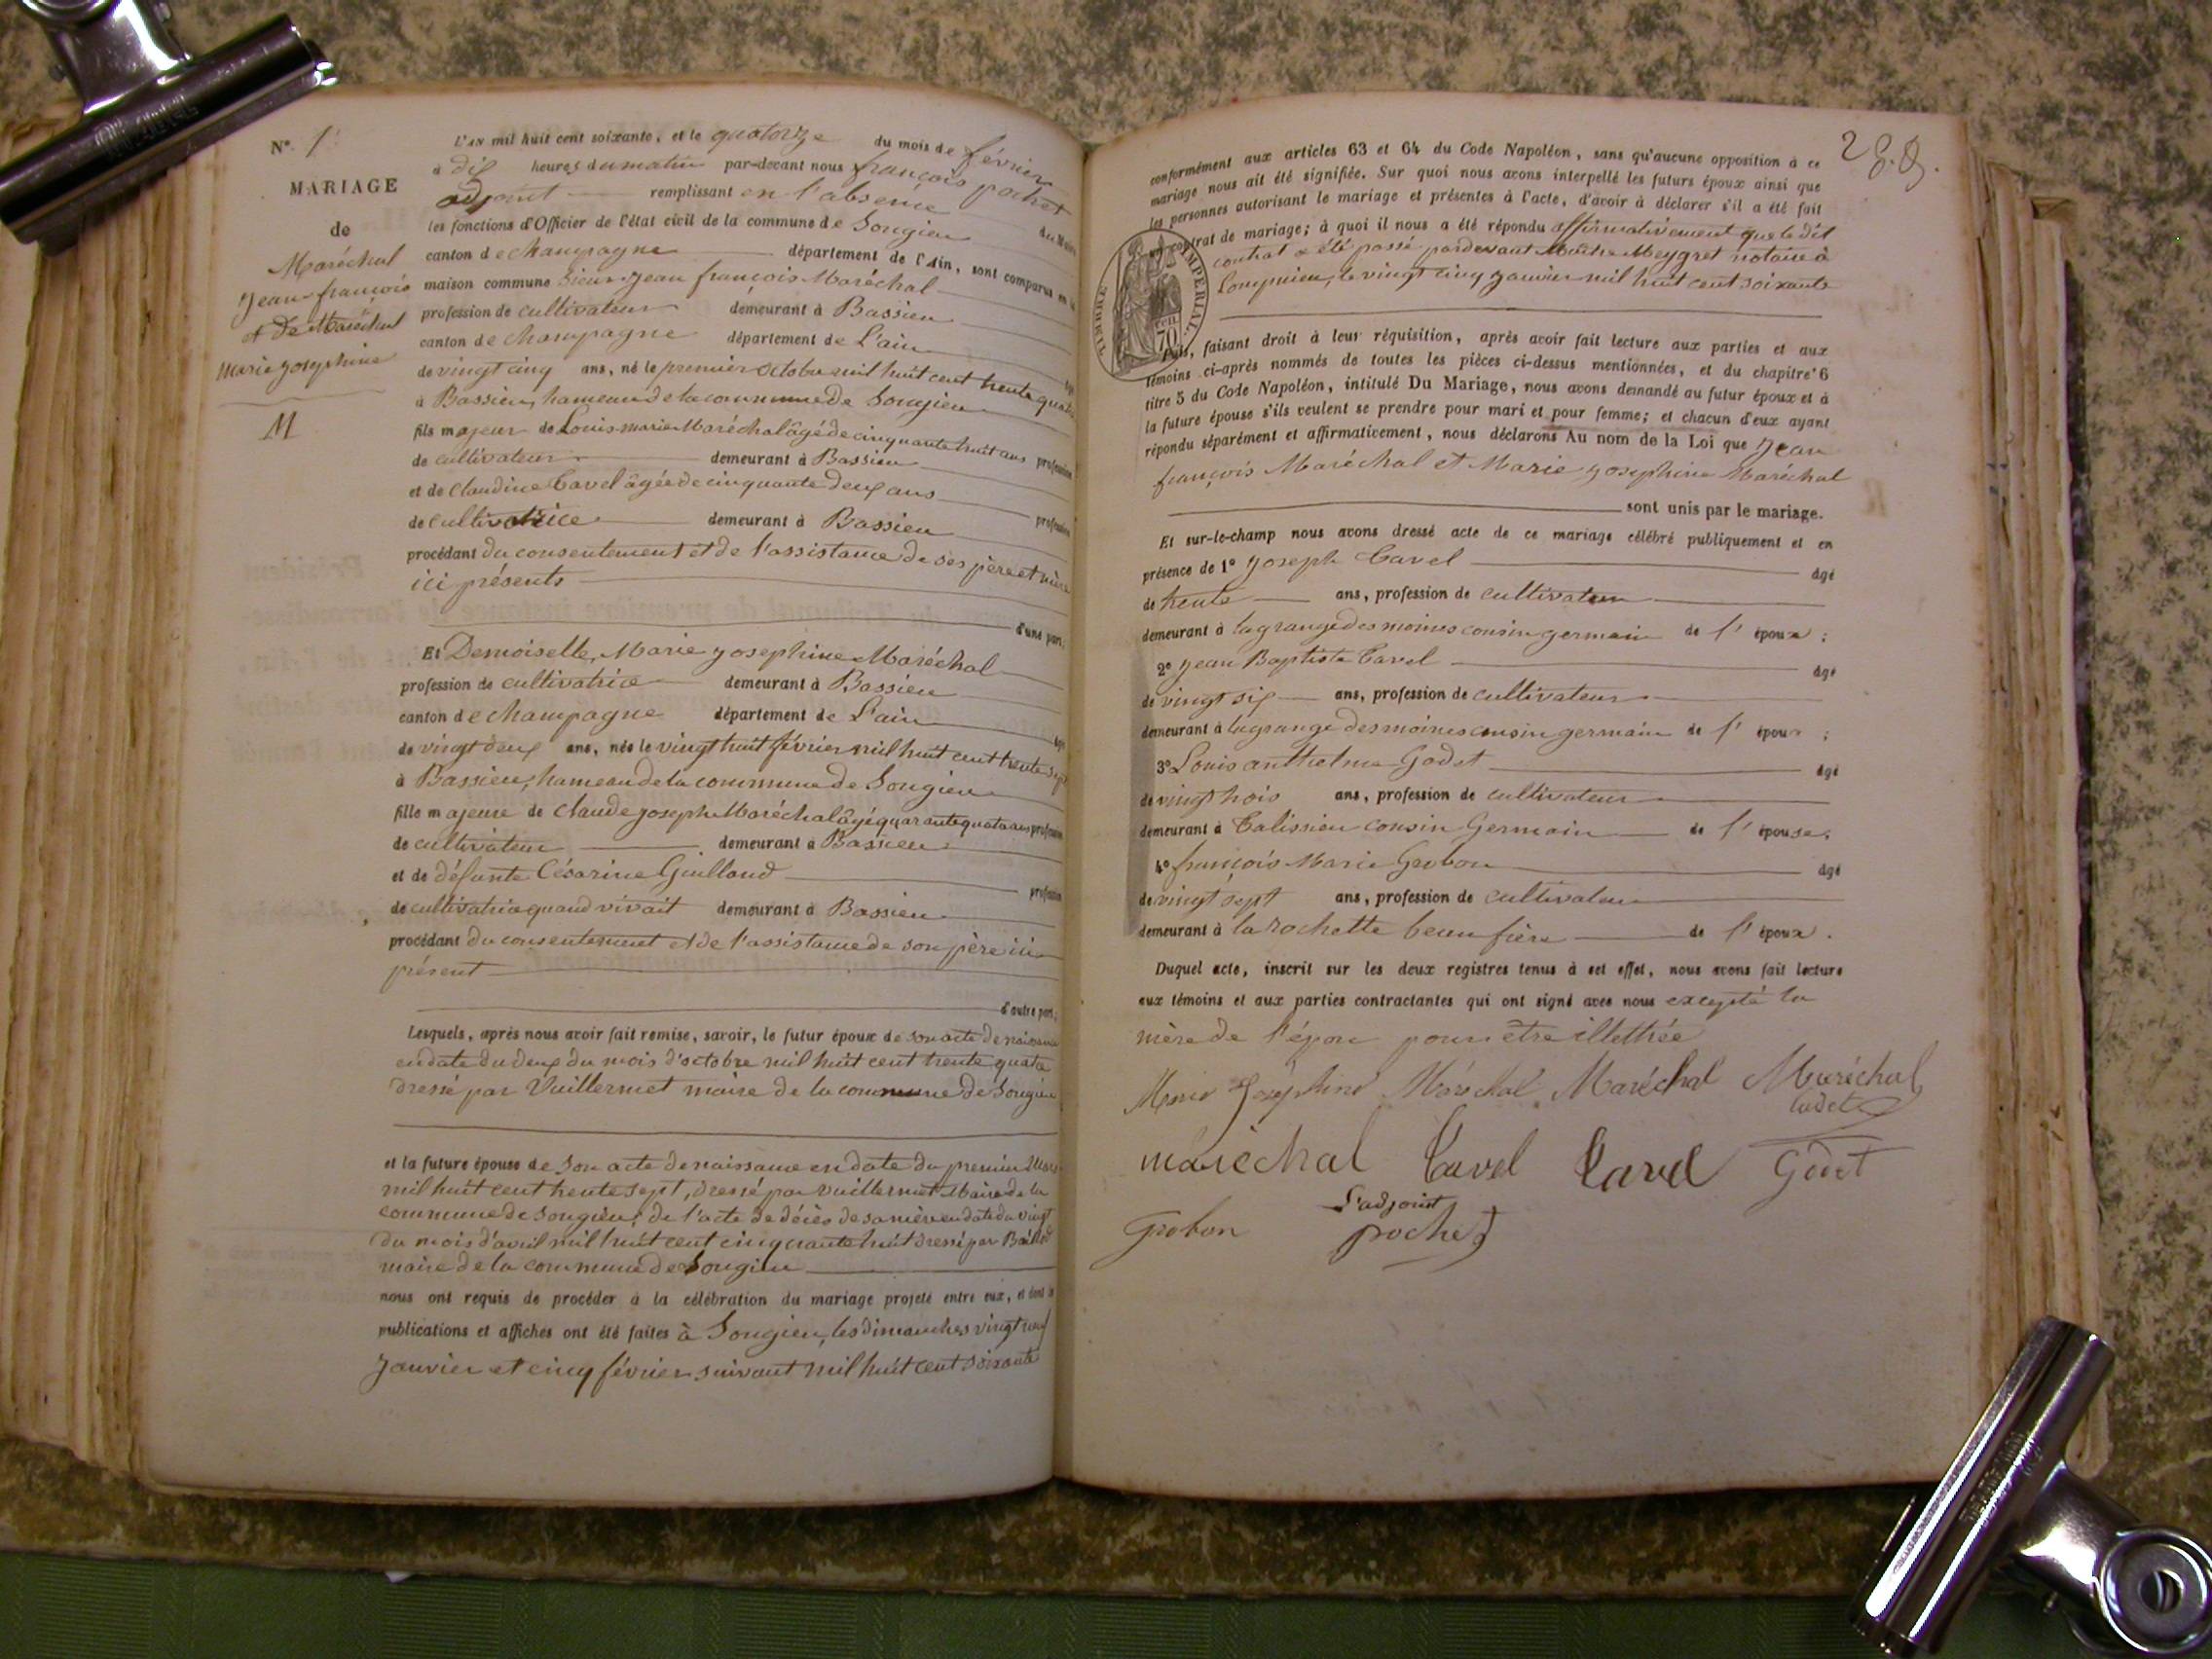 N° 1
MARIAGE
de
Maréchal
Jean-françois
et de Maréchal
marie josephine
M
L'AN mil huit cent soixante, et le quatorze du mois de février
à dix heures du matin par-devant nous françois pochet
adjoint remplissant en l'absence du Maire
les fonctions d'Officier de l'état civil de la commune de Songieu
canton de champagne département de l'Ain, sont comparus en la
maison commune Sieur Jean françois Maréchal
profession de cultivateur demeurant à Bassieu
canton de champagne département de L'ain
de vingt cinq ans, né le premier octobre mil huit cent trente quatre
à Bassieu, hameau de la commune de Songieu
fils majeur de Louis-marie Maréchal âgé de cinquante huit ans profession
de cultivateur demeurant à Bassieu
et de claudine Cavel âgée de cinquante deux ans profession
de cultivatrice demeurant à Bassieu
procédant du consentement et de l'assistance de ses père et mère
ici présents
d'une part.
Et Demoiselle, Marie josephine Maréchal
profession de cultivatrice demeurant à Bassieu
canton de champagne département de L'ain
de vingt deux ans, née le vingt huit février mil huit cent trente sept
à Bassieu, hameau de la commune de Songieu
fille majeure de claude joseph Maréchal âgé quarante quatre ans profession
de cultivateur demeurant à Bassieu
et de défunte Césarine Guilland profession
de cultivatrice quand vivait demeurant à Bassieu
procédant du consentement et de l'assistance de son père ici
présent
d'autre part.
Lesquels, après nous avoir fait remise, savoir, le futur époux de son acte de naissance
en date du deux du mois d'octobre mil huit cent trente quatre
dressé par Vuillermet maire de la commune de Songieu
et la future épouse de son acte de naissance en date du premier Mars
mil huit cent trente sept, dressé par Vuillermet Maire de la
commune de Songieu; de l'acte de décès de sa mère en date du vingt
du mois d'avril mil huit cent cinquante huit dressé par
maire de la commune de Songieu
nous ont requis de procéder à la célébration du mariage projeté entre eux, et dont les
publications et affiches ont été faites à Songieu, les dimanches vingt neuf
Janvier et cinq février suivant mil huit cent soixante
conformément aux articles 63 et 64 du Code Napoléon, sans qu'aucune opposition à ce
mariage nous ait été signifiée. Sur quoi nous avons interpellé les futurs époux ainsi que
les personnes autorisant le mariage et présentes à l'acte, d'avoir à déclarer s'il a été fait
un contrat de mariage; à quoi il nous a été répondu affirmativement que le dit
contrat a été passé pardevant Maître Meygret notaire à
Lompnieu, le vingt cinq janvier mil huit cent soixante
TIMBRE IMPERIAL
70
Puis, faisant droit à leur réquisition, après avoir fait lecture aux parties et aux
témoins ci-après nommés de toutes les pièces ci-dessus mentionnées, et du chapitre 6
titre 5 du Code Napoléon, intitulé Du Mariage, nous avons demandé au futur époux et à
la future épouse s'ils veulent se prendre pour mari et pour femme; et chacun d'eux ayant
répondu séparément et affirmativement, nous déclarons Au nom de la Loi que Jean
françois Maréchal et Marie josephine Maréchal
sont unis par le mariage.
Et sur-le-champ nous avons dressé acte de ce mariage célébré publiquement et en
présence de 1° joseph Cavel âgé
de trente ans, profession de cultivateur
demeurant à la grange des moines cousin germain de l' époux ;
2° jean Baptiste Cavel âgé
de vingt six ans, profession de cultivateur
demeurant à la grange des moines cousin germain de l' époux ;
3° Louis anthelme Godet âgé
de vingt trois ans, profession de cultivateur
demeurant à Talissieu cousin Germain de l' épouse.
4° françois Marie Grobon âgé
de vingt sept ans, profession de cultivateur
demeurant à la rochette beau frère de l' époux .
Duquel acte, inscrit sur les deux registres tenus à cet effet, nous avons fait lecture
aux témoins et aux parties contractantes qui ont signé avec nous excepté la
mère de l'époux pour être illettrée
Marie Joséphine Maréchal Maréchal Maréchal
Cadet
maréchal Cavel Cavel Godet
L'adjoint
Grobon pochet